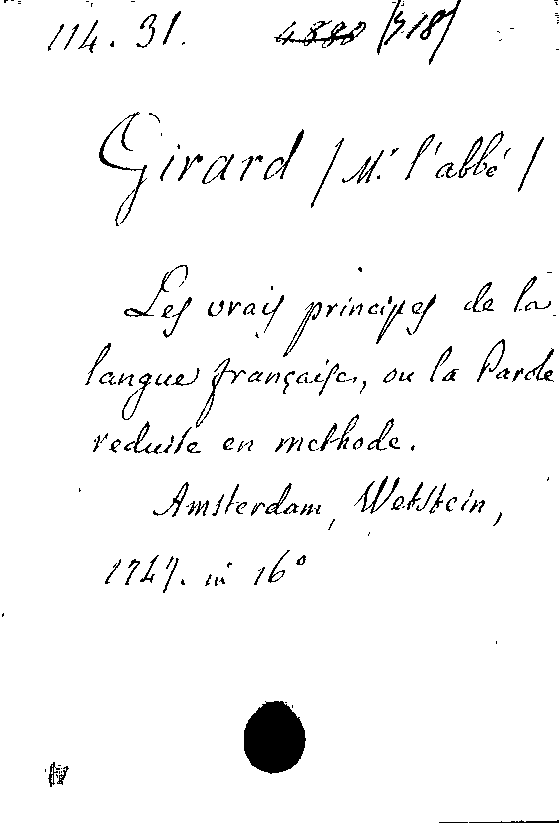 114. 31. 4880 (718)
Girard / Mr. l'abbé /
Les vrais principes de la
langue française, ou la Parole
reduite en methode.
Amsterdam, Wetstein,
1747. in 16°